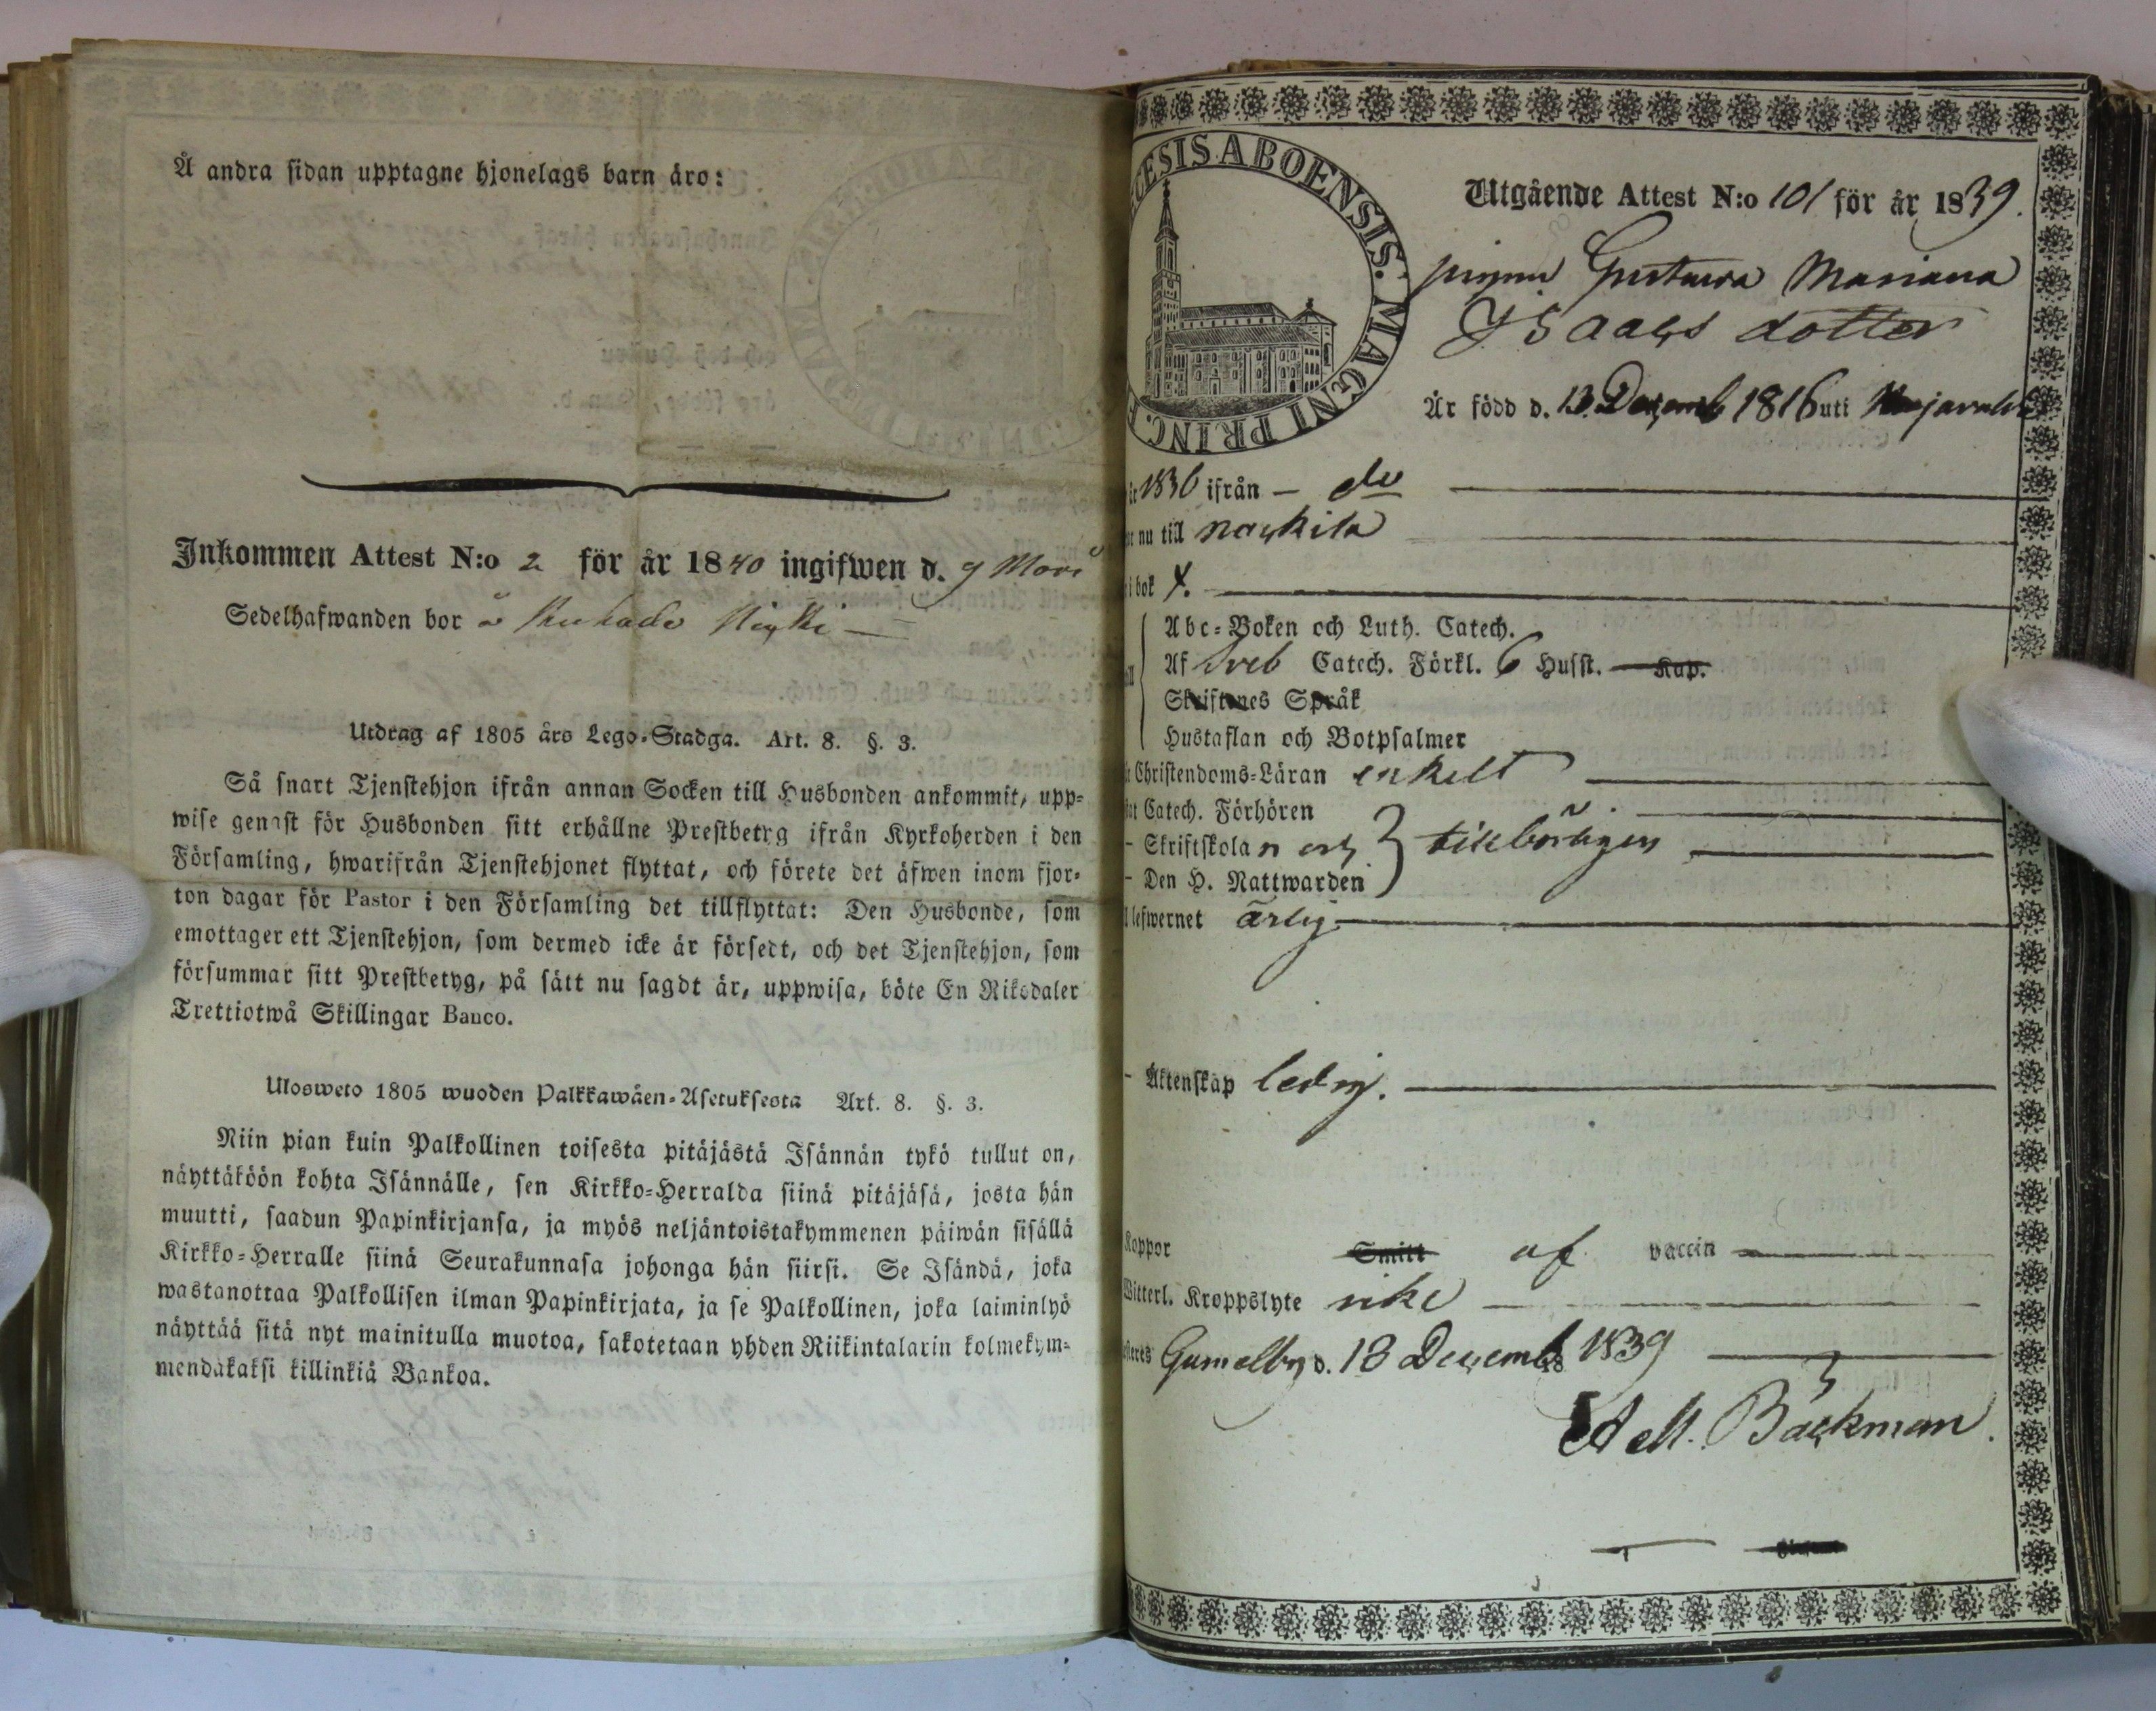 Å andra sidan upptagne hjonelags barn äro:
Inkommen Attest N:o 2 för år 1840 ingifwen d. 9 Mars
Sedelhafwanden bor å
Utdrag af 1805 års Lego-Stadga. Art. 8. §. 3.
Så snart Tjenstehjon ifrån annan Socken till Husbonden ankommit, upp-
wise genast för Husbonden sitt erhållne Prestbetyg ifrån Kyrkoherden i den
Församling, hwarifrån Tjenstehjonet flyttat, och förete det äfwen inom fjor-
ton dagar för Pastor i den Församling det tillflyttat: Den Husbonde, som
emottager ett Tjenstehjon, som dermed icke är försedt, och det Tjenstehjon, som
försummar sitt Prestbetyg, på sätt nu sagdt är, uppwisa, böte En Riksdaler
Trettiotwå Skillingar Banco.
Ulosweto 1805 wuoden Palkkawäen-Asetuksesta Art. 8. §. 3.
Niin pian kuin Palkollinen toisesta pitäjästä Isännän tykö tullut on,
näyttäköön kohta Isännälle, sen Kirkko-Herralda siinä pitäjäsä, josta hän
muutti, saadun Papinkirjansa, ja myös neljäntoistakymmenen päiwän sisällä
Kirkko-Herralle siinä Seurakunnasa johonga hän siirsi. Se Isändä, joka
wastanottaa Palkollisen ilman Papinkirjata, ja se Palkollinen, joka laiminlyö
näyttää sitä nyt mainitulla muotoa, sakotetaan yhden Riikintalarin kolmekym-
mendäkaksi killinkiä Bankoa.
ESIS ABOENSIS. MAGNI PRINC. F
Utgående Attest N:o 101 för år 1839.
pigan Gustava Mariana
Isaacs dotter
Är född d. 13 Decemb 1816 uti
1836 ifrån — do
nu till Nackila
i bok 1.
Abc-Boken och Luth. Catech.
Af Sveb Catech. Förkl. 6 Husst. Kap.
Skriftenes Språk
Hustaflan och Botpsalmer
Christendoms-Läran enkelt
Catech. Förhören
- Skriftskolan och } tillbörligen
- Den H. Nattwarden
lefwernet ärlig
- Äktenskap ledig.
Koppor Smitt af vaccin
Witterl. Kroppslyte icke
Gamelby d. 13 Decemb 1839
Ad M. Bäckman.